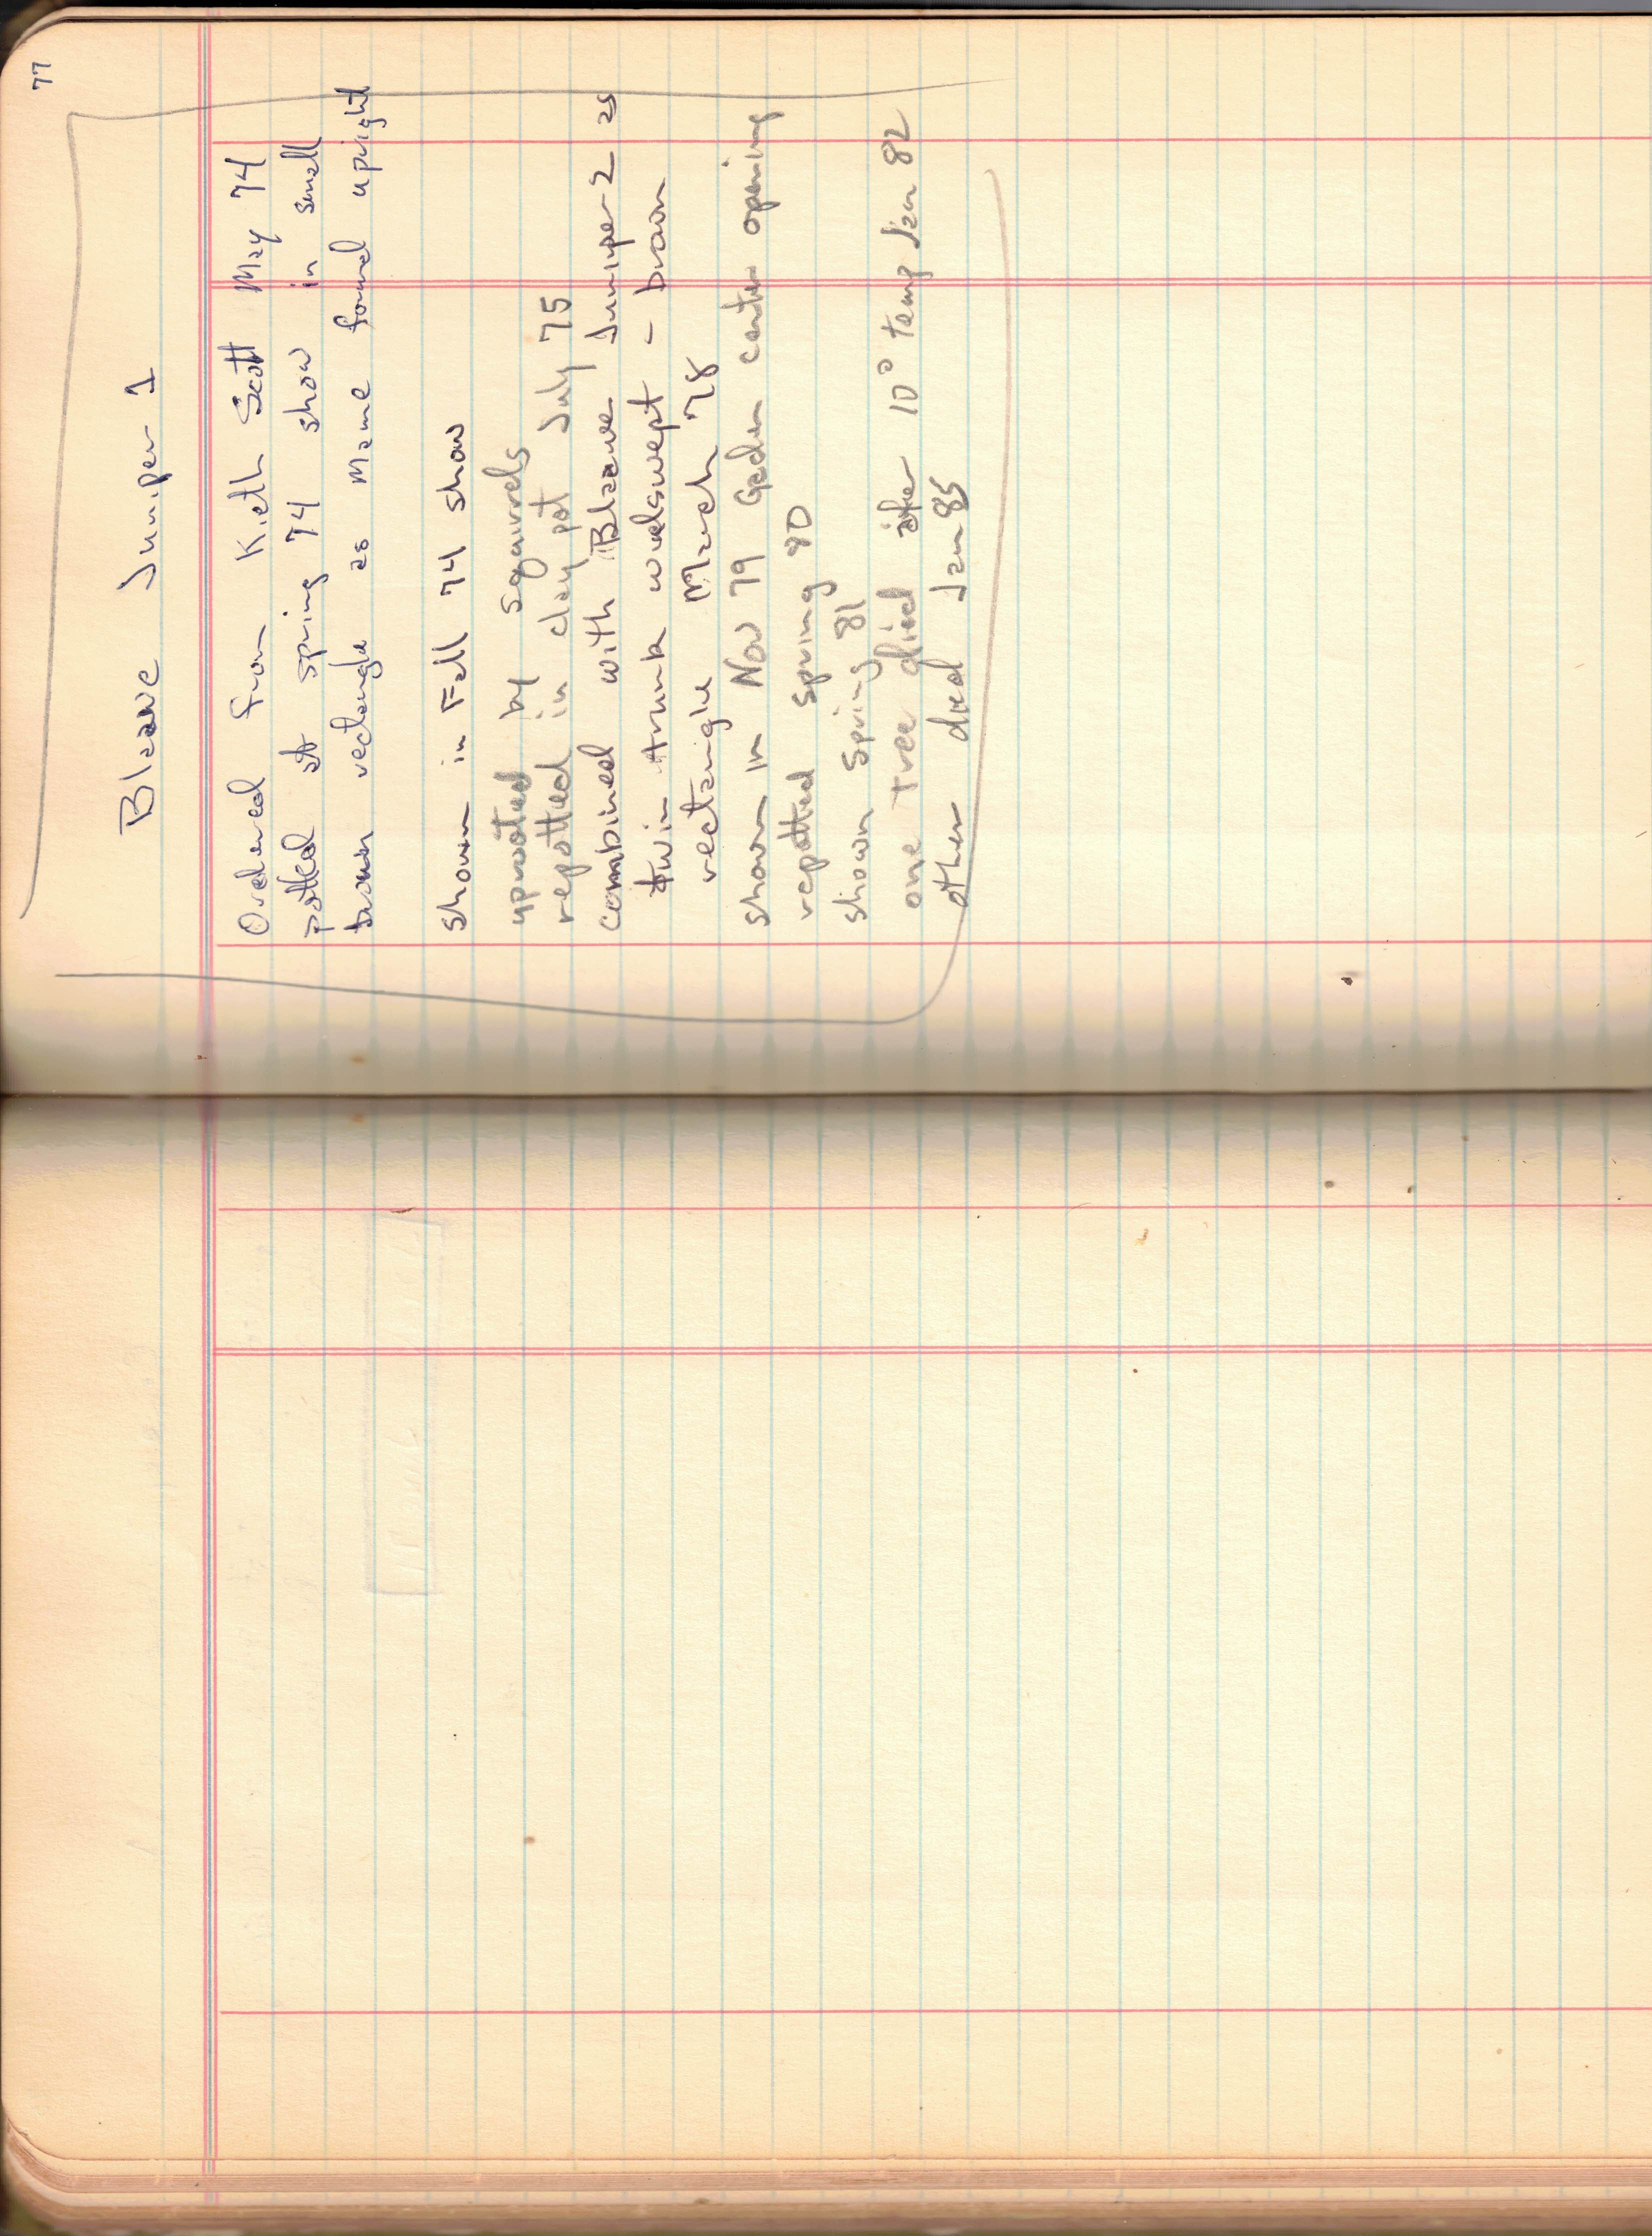 77
Blaawe Juniper 1
Ordered from Kieth Scott May 74
potted at spring 74 show in small
brown rectangle as Mame formal upright
shown in Fall 74 show
uprooted by squirrels
repotted in clay pot July 75
combined with Blaawe Juniper 2 as
twin trunk windswept - brown
rectangle March 78
shown in Nov 79 Garden center opening
repotted spring 80
shown spring 81
one tree died after 10° temp Jan 82
other died Jan 85